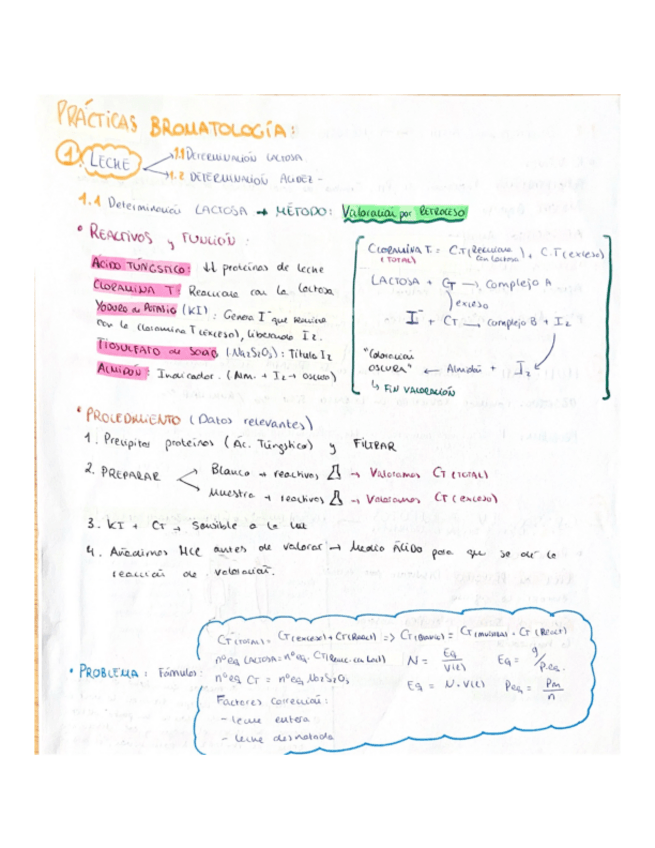 PRÁCTICAS BROMATOLOGÍA:
1. LECHE
1.1 DETERMINACIÓN LACTOSA
1.2 DETERMINACIÓN ACIDEZ -
1.1 Determinación LACTOSA → MÉTODO: Valoración por RETROCESO
• REACTIVOS y FUNCIÓN:
ÁCIDO TÚNGSTICO: ↓↓ proteínas de leche
CLORAMINA T: Reacciona con la lactosa
YODURO de POTASIO (KI): Genera I⁻ que reacciona
con la cloramina T (exceso), liberando I₂.
TIOSULFATO de SODIO (Na₂S₂O₃): Titula I₂
ALMIDÓN: Indicador. (Alm. + I₂ → oscuro)
CLORAMINA T = C.T (Reacciona + C.T (exceso)
(TOTAL) con lactosa)
LACTOSA + CT → Complejo A
exceso
I⁻ + CT → complejo B + I₂
"Coloración
OSCURA" ← Almidón + I₂
↳ FIN VALORACIÓN
• PROCEDIMIENTO (Datos relevantes)
1. Precipitar proteínas (Ác. Túngstico) y FILTRAR
2. PREPARAR
Blanco → reactivos → Valoramos CT (TOTAL)
Muestra → reactivos → Valoramos CT (exceso)
3. KI + CT → Sensible a la luz
4. Añadimos HCl antes de valorar → Medio Ácido para que se dé la
reacción de valoración.
• PROBLEMA: Fórmulas:
CT (TOTAL) = CT (exceso) + CT (React) => CT (Blanco) = CT (muestra) + CT (React)
nº eq LACTOSA = nº eq. CT (Reacc. con Lact)
N = Eq / V(l)
Eq = g / P.eq.
nº eq CT = nº eq Na₂S₂O₃
Eq = N · V(l)
Peq = Pm / n
Factores corrección:
- leche entera
- leche desnatada